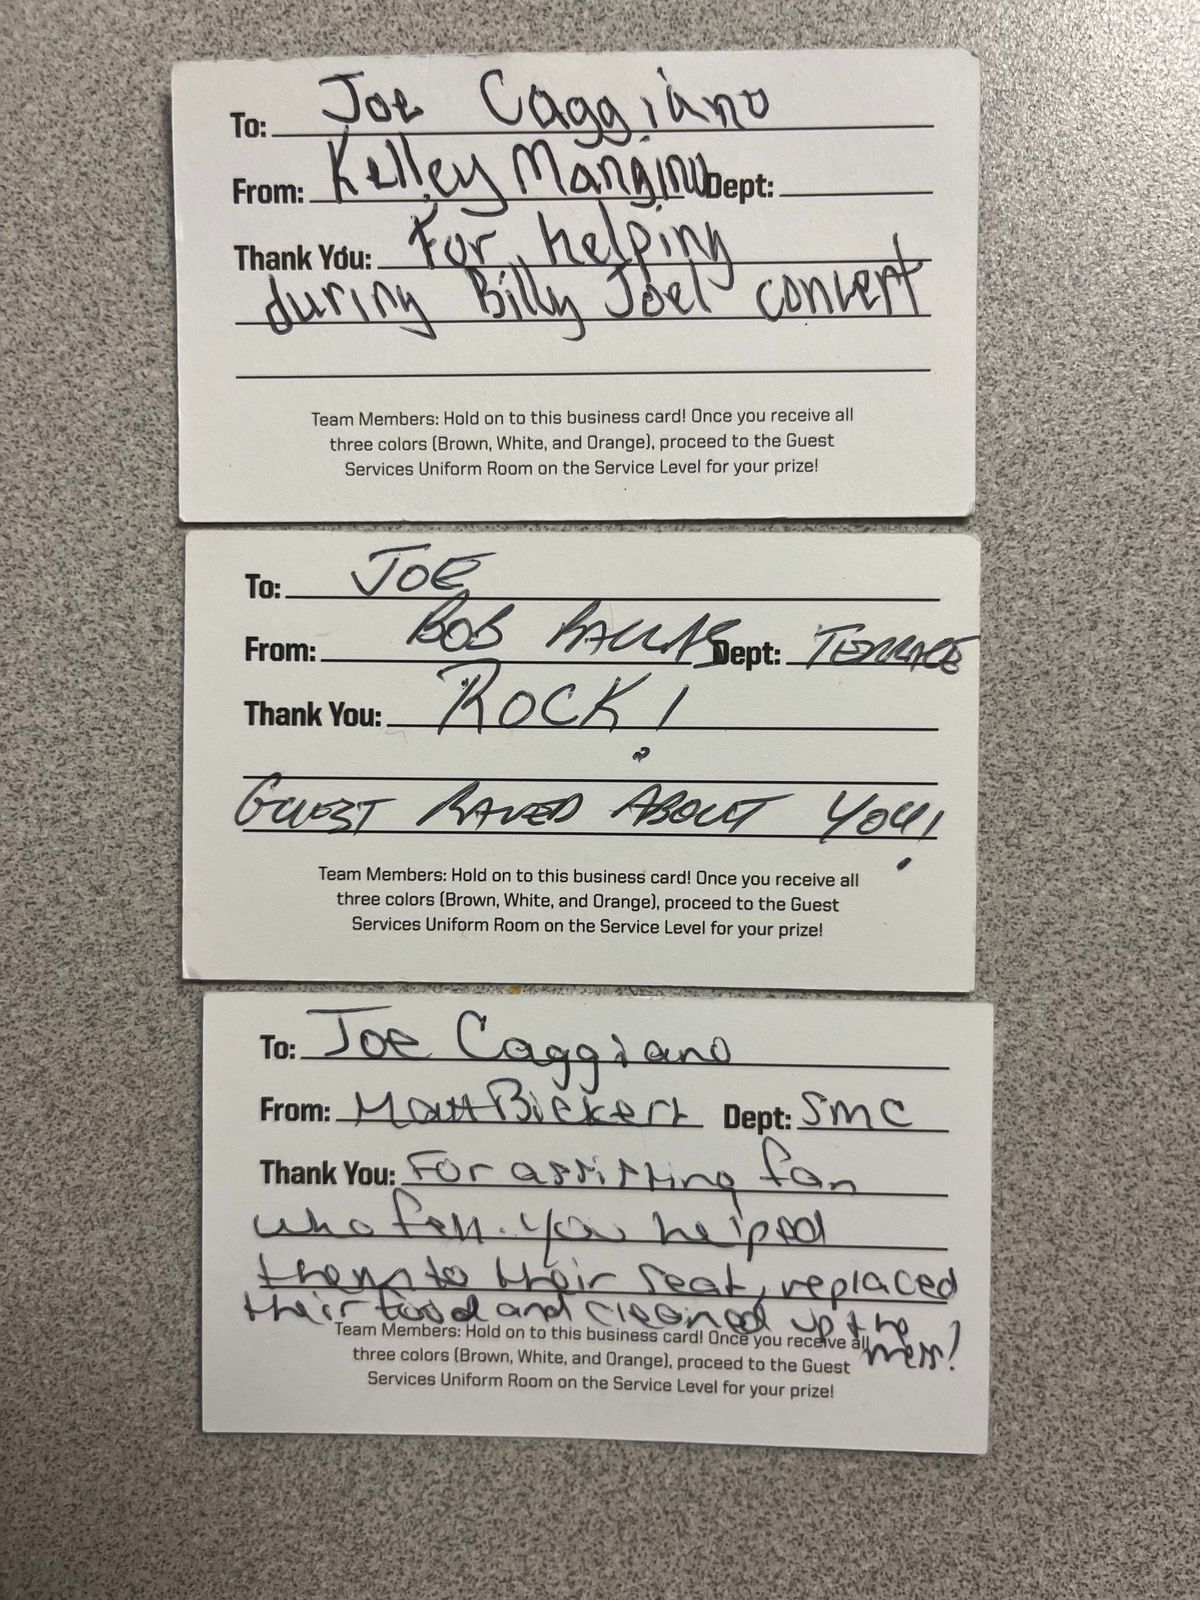 To: Joe Caggiano
From: Kelley Mangino Dept:
Thank You: For helping
during Billy Joel concert
Team Members: Hold on to this business card! Once you receive all
three colors (Brown, White, and Orange), proceed to the Guest
Services Uniform Room on the Service Level for your prize!
To: JOE
From: BOB Dept: TERRACE
Thank You: ROCK!
GUEST RAVED ABOUT YOU!
Team Members: Hold on to this business card! Once you receive all
three colors (Brown, White, and Orange), proceed to the Guest
Services Uniform Room on the Service Level for your prize!
To: Joe Caggiano
From: Matt Bickert Dept: SMC
Thank You: For assisting fan
who fell. You helped
them to their seat, replaced
their food and cleaned up the
mess!
Team Members: Hold on to this business card! Once you receive all
three colors (Brown, White, and Orange), proceed to the Guest
Services Uniform Room on the Service Level for your prize!